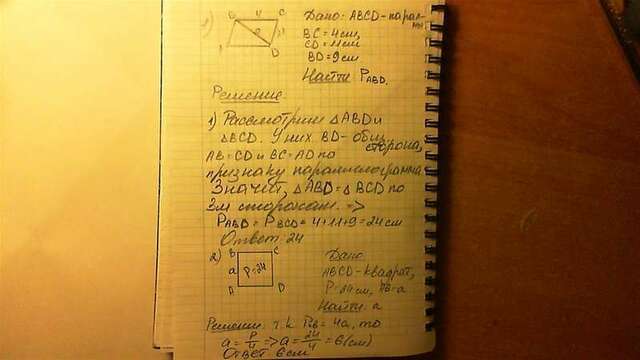 1) B 4 C Дано: ABCD-парал-
9 11 мм
A D BC=4см,
CD=11см
BD=9см
Найти P ABD.
Решение.
1) Рассмотрим △ABD и
△BCD. У них BD-общ.
сторона,
AB=CD и BC=AD по
признаку параллелограмма
Значит, △ABD=△BCD по
3м сторонам. =>
P ABD = P BCD = 4+11+9=24см
Ответ: 24
2) B C Дано
a P=24 ABCD-квадрат,
A D P=24см, AB=a
Найти: a
Решение: т.к P кв = 4a, то
a=P/4 => a=24/4=6(см)
Ответ 6см